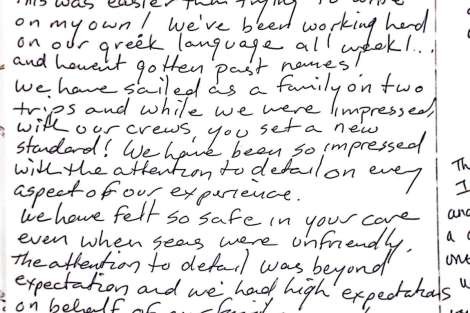 This was easier than trying to write
on my own! We've been working hard
on our greek language all week!...
and havent gotten past names!
We have sailed as a family on two
trips and while we were impressed
with our crews, you set a new
standard! We have been so impressed
with the attention to detail on every
aspect of our experience.
We have felt so safe in your care
even when seas were unfriendly.
The attention to detail was beyond
expectation and we had high expectations
on behalf of our
Th
I
and
a